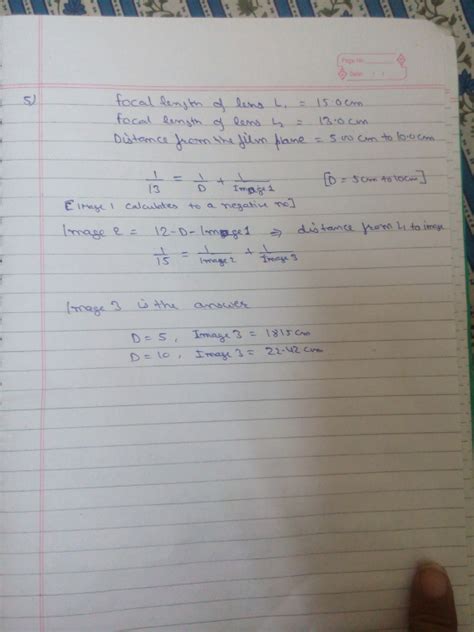 Page No.
Date: / /
5)
Focal length of lens L1 = 15.0cm
Focal length of lens L2 = 13.0cm
Distance from the film plane = 5.00 cm to 10.0cm
1/13 = 1/D + 1/Image1 [D = 5cm to 10cm]
[Image 1 calculates to a negative no]
Image 2 = 12-D-Image1 ⇒ distance from L1 to image
1/15 = 1/Image2 + 1/Image3
Image 3 is the answer
D = 5, Image 3 = 1815cm
D = 10, Image 3 = 22.42 cm